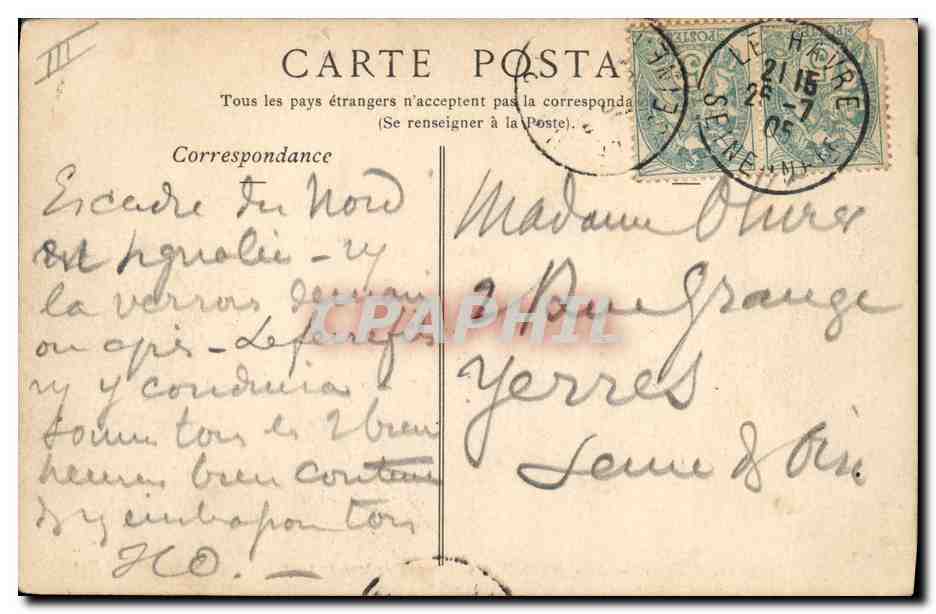 III
CARTE POSTA
Tous les pays étrangers n'acceptent pas la corresponda
(Se renseigner à la Poste).
Correspondance
Escadre du Nord
est signalée - 
la verrons demain
ou après - Le
y conduira -
sommes tous les 2 bien
heureux bien
embrassons tous
HO. -
Madame Olivier
2 Rue Grange
Yerres
Seine & Oise
LE HAVRE
21 15
26 -7
05
SEINE INFRE
POSTES
POSTES
CPAPHIL